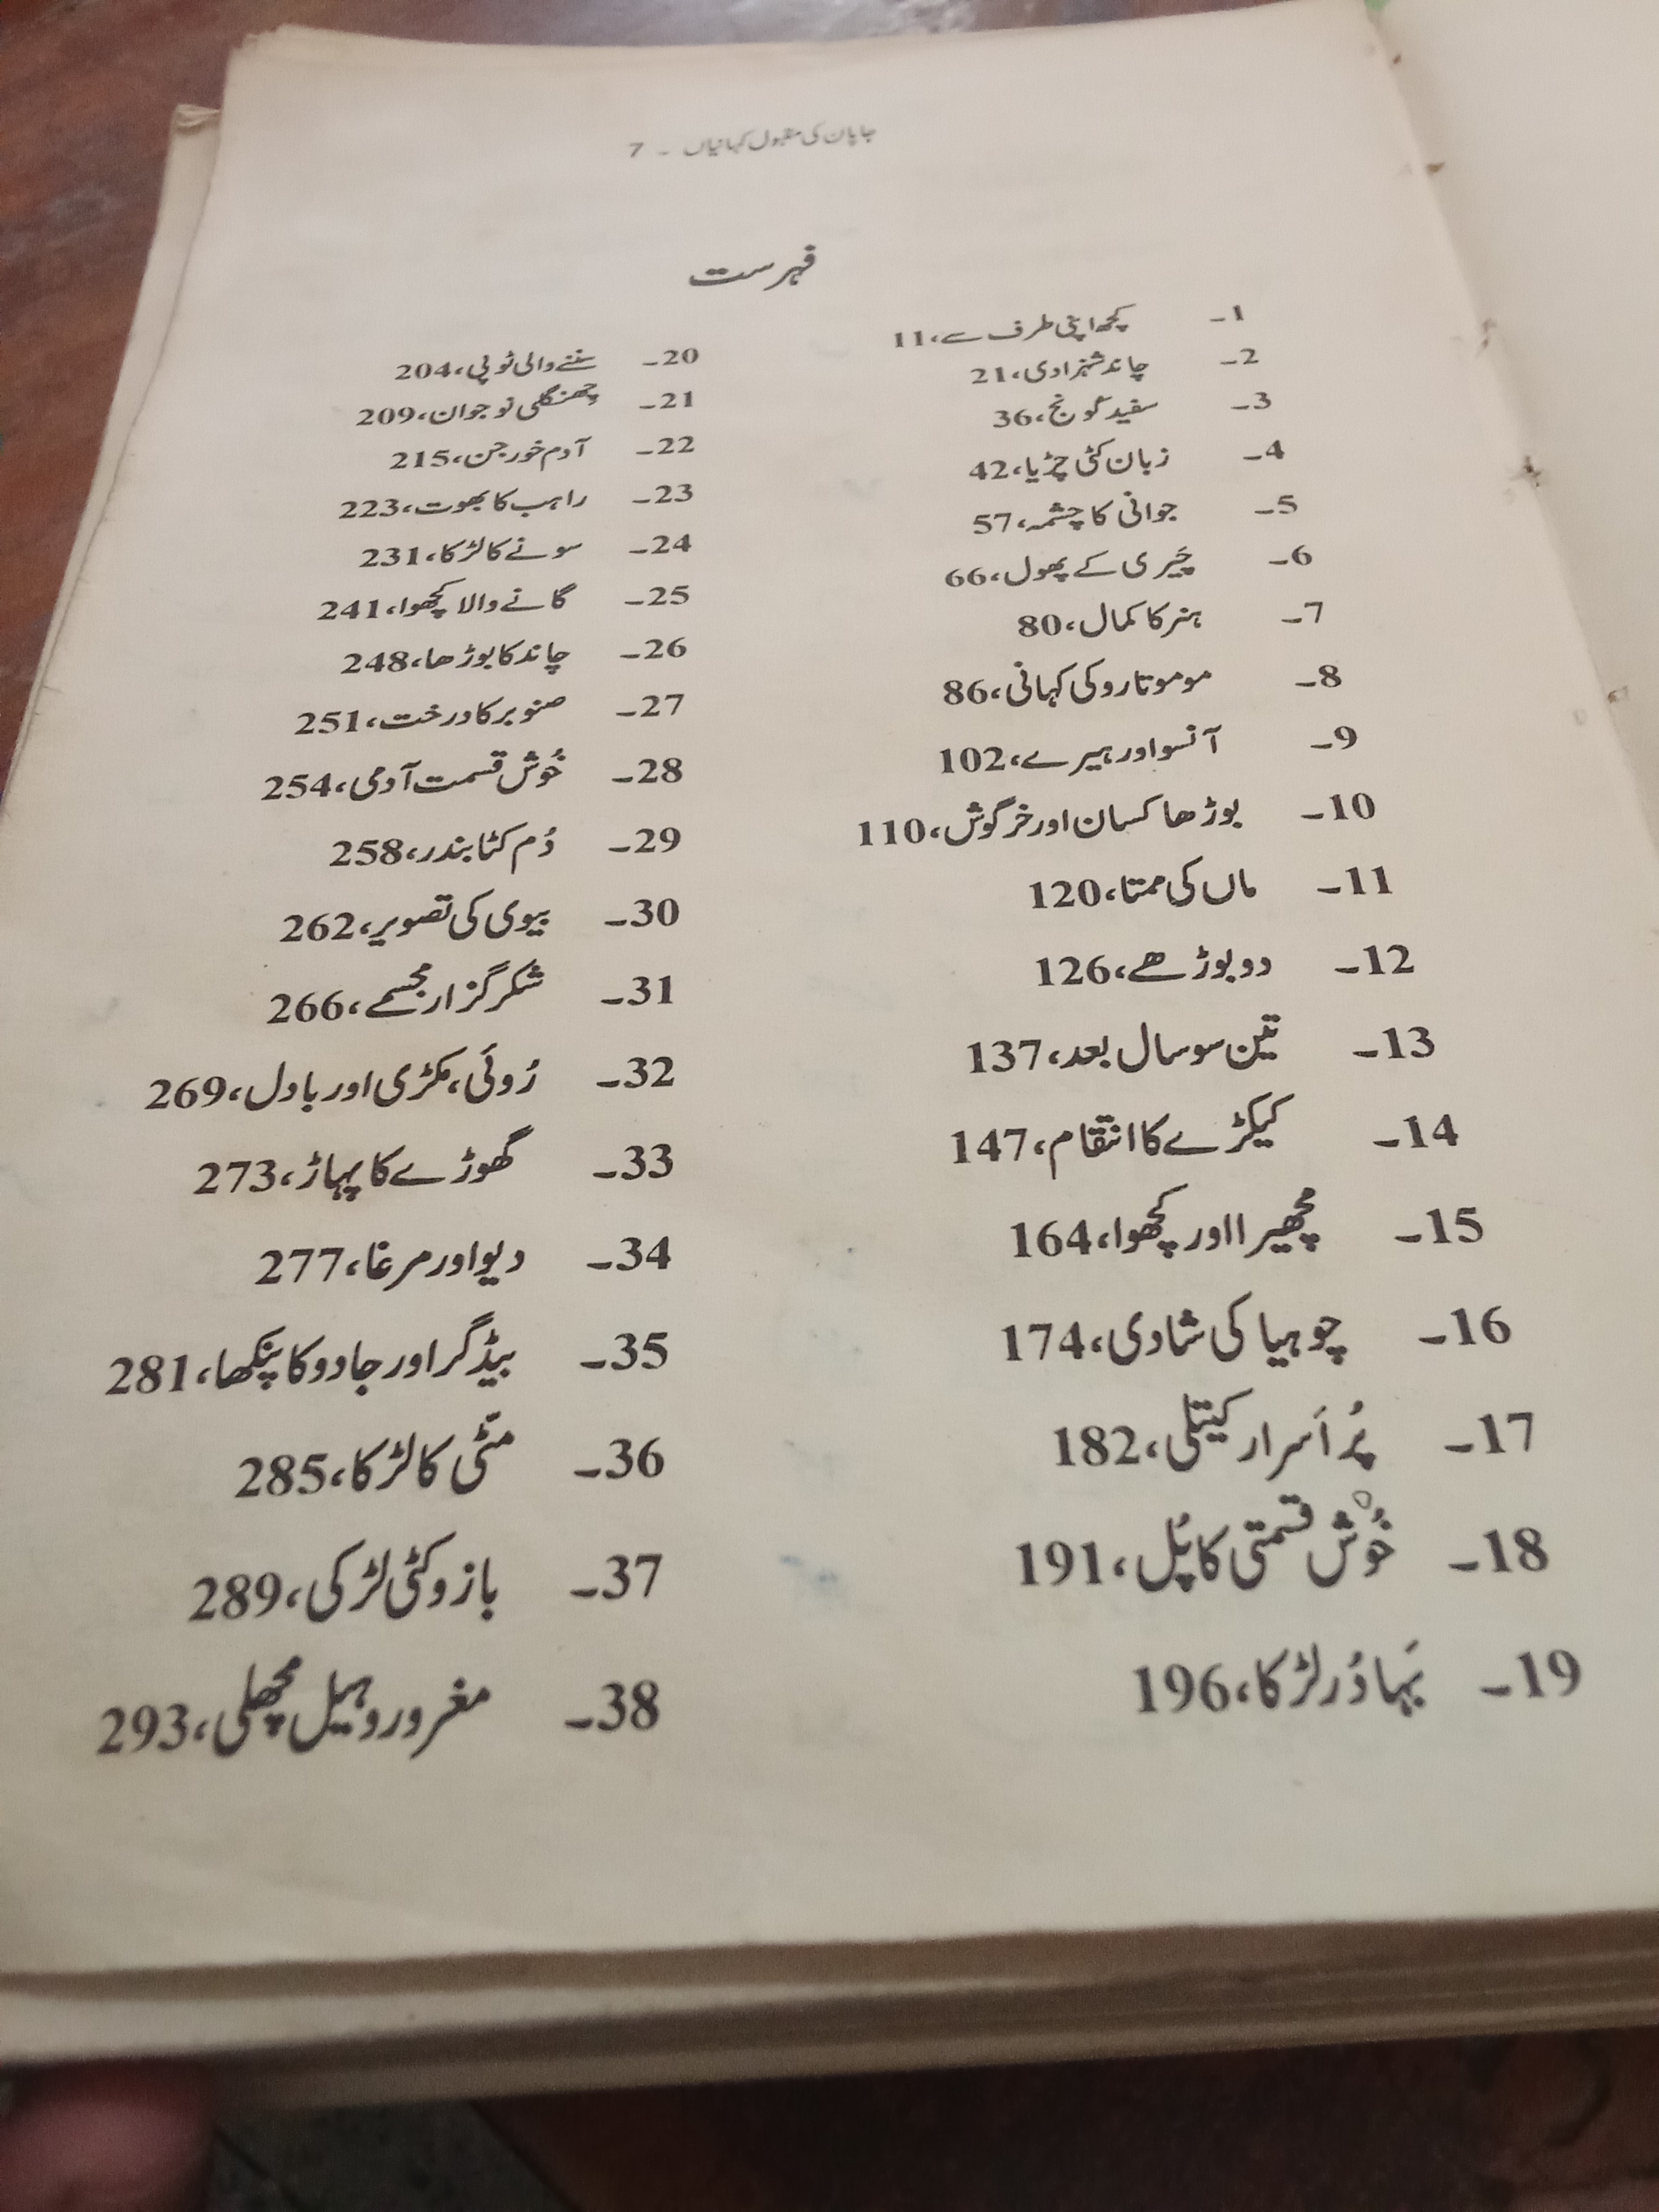 جاپان کی مقبول کہانیاں - 7
فہرست
1۔ کچھ اپنی طرف سے، 11
2۔ چاند شہزادی، 21
3۔ سفید کونج، 36
4۔ زبان کٹی چڑیا، 42
5۔ جوانی کا چشمہ، 57
6۔ چیری کے پھول، 66
7۔ ہنر کا کمال، 80
8۔ موموتارو کی کہانی، 86
9۔ آنسو اور ہیرے، 102
10۔ بوڑھا کسان اور خرگوش، 110
11۔ ماں کی ممتا، 120
12۔ دو بوڑھے، 126
13۔ تین سو سال بعد، 137
14۔ کیکڑے کا انتقام، 147
15۔ مچھیرا اور کچھوا، 164
16۔ چوہیا کی شادی، 174
17۔ پُر اَسرار کیتلی، 182
18۔ خُوش قسمتی کا پُل، 191
19۔ بَہادُر لڑکا، 196
20۔ سننے والی ٹوپی، 204
21۔ چھنگلی نوجوان، 209
22۔ آدم خور جن، 215
23۔ راہب کا بھوت، 223
24۔ سونے کا لڑکا، 231
25۔ گانے والا کچھوا، 241
26۔ چاند کا بوڑھا، 248
27۔ صنوبر کا درخت، 251
28۔ خُوش قسمت آدمی، 254
29۔ دُم کٹا بندر، 258
30۔ بیوی کی تصویر، 262
31۔ شکر گزار مجسمے، 266
32۔ رُوئی، مکڑی اور بادل، 269
33۔ گھوڑے کا پہاڑ، 273
34۔ دیو اور مرغا، 277
35۔ بیڈگر اور جادو کا پنکھا، 281
36۔ مٹّی کا لڑکا، 285
37۔ بازو کٹی لڑکی، 289
38۔ مغرور وہیل مچھلی، 293